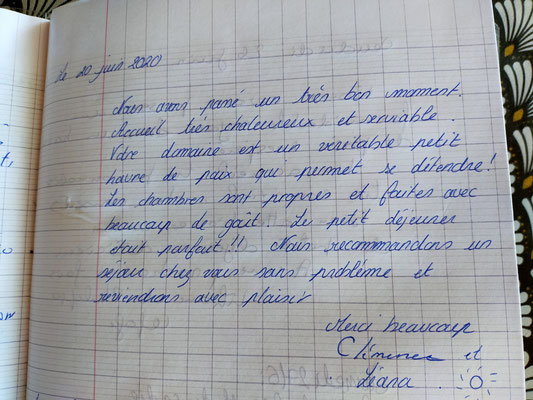 Le 20 juin 2020
Nous avons passé un très bon moment.
Accueil très chaleureux et serviable.
Votre domaine est un veritable petit
havre de paix qui permet se détendre!
Les chambres sont propres et faites avec
beaucoup de goût. Le petit déjeuner
était parfait!! Nous recommandons un
séjour chez vous sans problème et
reviendrons avec plaisir
Merci beaucoup
et
Léana.